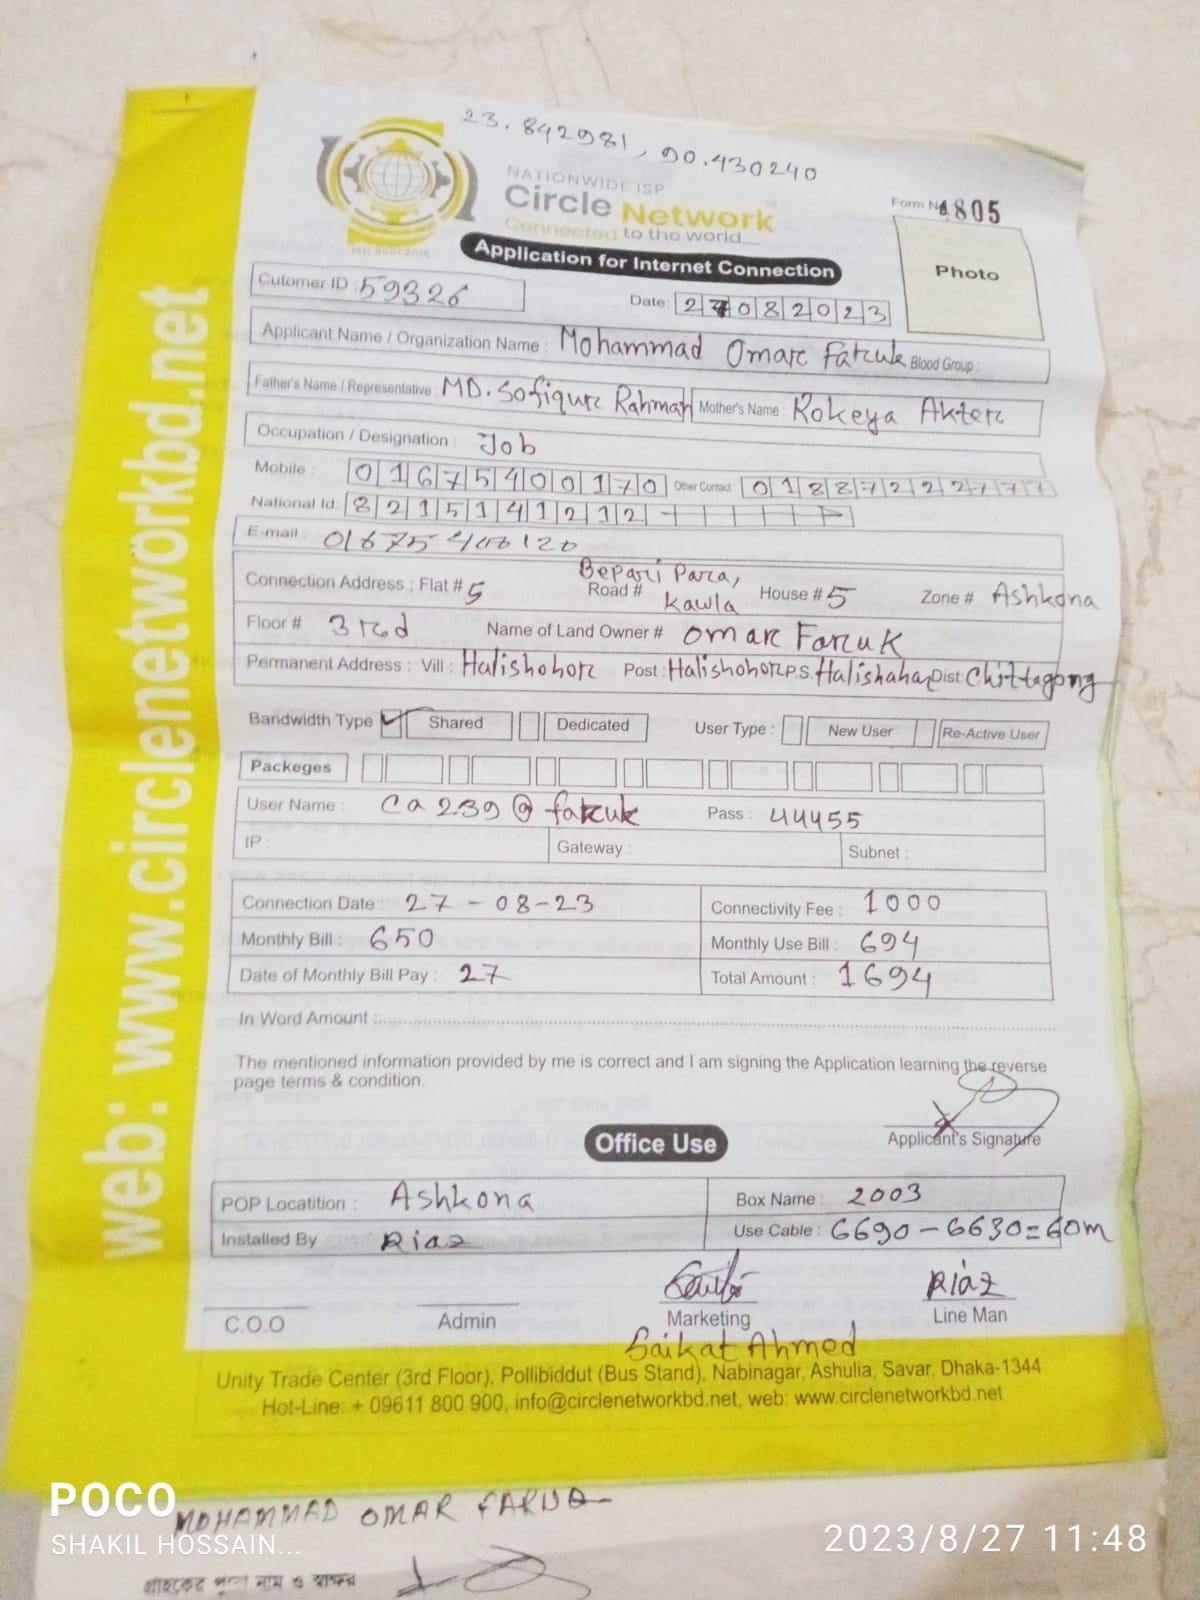 23.842981, 90.430240
NATIONWIDE ISP
Circle Network
Connected to the world.....
ISO 9001:2015
Form No 1805
Photo
Application for Internet Connection
Cutomer ID : 59326
Date: 27082023
Applicant Name / Organization Name : Mohammad Omar Faruk Blood Group :
Father's Name / Representative : MD. Sofiqur Rahman Mother's Name : Rokeya Akter
Occupation / Designation : Job
Mobile : 01675400170 Other Contact : 01887222777
National Id: 8215141212
E-mail :
Connection Address : Flat # 5 Road # Bepari Para, Kawla House # 5 Zone # Ashkona
Floor # 3rd Name of Land Owner # Omar Faruk
Permanent Address : Vill : Halishohor Post : Halishohor P.S. Halishahar Dist: Chittagong
Bandwidth Type Shared Dedicated User Type : New User Re-Active User
Packeges
User Name : Ca239@faruk Pass : 44455
IP : Gateway : Subnet :
Connection Date : 27-08-23 Connectivity Fee : 1000
Monthly Bill : 650 Monthly Use Bill : 694
Date of Monthly Bill Pay : 27 Total Amount : 1694
In Word Amount :
The mentioned information provided by me is correct and I am signing the Application learning the reverse
page terms & condition.
Applicant's Signature
Office Use
POP Locatition : Ashkona Box Name : 2003
Installed By Riaz Use Cable : 6690-6630=60m
Riaz
C.O.O Admin Marketing Line Man
Saikat Ahmed
Unity Trade Center (3rd Floor), Pollibiddut (Bus Stand), Nabinagar, Ashulia, Savar, Dhaka-1344
Hot-Line: + 09611 800 900, info@circlenetworkbd.net, web: www.circlenetworkbd.net
web: www.circlenetworkbd.net
MOHAMMAD OMAR FARUQ
গ্রাহকের পুরো নাম ও স্বাক্ষর
POCO
SHAKIL HOSSAIN...
2023/8/27 11:48